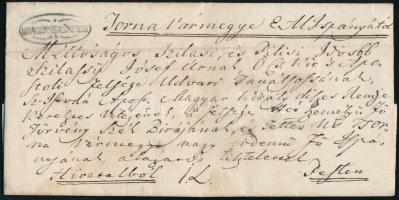 Torna Vármegye Al Ispányától
Méltóságos Szilasi, és Pilisi Idősb
Szilassy Jósef Úrnak Ő Cs Kir és Apos
toli felsége Udvari Tanátsossának,
Sz István Apost. Magyar Király díszes Rende
Vitézének, felsége
Törvény Szék Birájának, és Tettes Ns Tor
na Vármegye nagy érdemű Fő Ispá
nyának, alázatos tisztelettel
Hivatalból Pesten